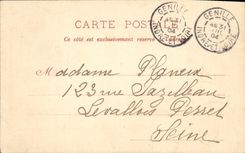 CARTE POSTALE
Ce côté est exclusivement réservé
GENILLÉ
INDRE-ET-LOIRE
04
GENILLÉ
INDRE-ET-LOIRE
04
Madame Planeix
123 rue Gazelleau
Levallois Perret
Seine